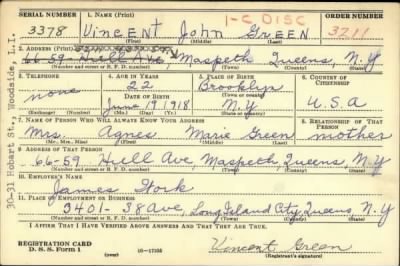 SERIAL NUMBER 1. NAME (Print) ORDER NUMBER
1-C DISC
3378 VINCENT John GREEN 3211
(First) (Middle) (Last)
2. ADDRESS (Print)
66-59 Hull Ave Maspeth Queens, N.Y
(Number and street or R. F. D. number) (Town) (County) (State)
3. TELEPHONE 4. AGE IN YEARS 5. PLACE OF BIRTH 6. COUNTRY OF CITIZENSHIP
none 22 Brooklyn U.S.A
DATE OF BIRTH (Town or county)
June 19, 1918 N.Y
(Mo.) (Day) (Yr.) (State or country)
7. NAME OF PERSON WHO WILL ALWAYS KNOW YOUR ADDRESS 8. RELATIONSHIP OF THAT PERSON
Mrs. Agnes Marie Green mother
(Mr., Mrs., Miss) (First) (Middle) (Last)
9. ADDRESS OF THAT PERSON
66-59 Hull Ave, Maspeth, Queens, N.Y
(Number and street or R. F. D. number) (Town) (County) (State)
10. EMPLOYER'S NAME
James Stork
11. PLACE OF EMPLOYMENT OR BUSINESS
3401-38 Ave, Long Island City, Queens, N.Y.
(Number and street or R. F. D. number) (Town) (County) (State)
I AFFIRM THAT I HAVE VERIFIED ABOVE ANSWERS AND THAT THEY ARE TRUE.
REGISTRATION CARD
D. S. S. Form 1 (over) 16-17105 Vincent Green
(Registrant's signature)
30-31 Hobart St., Woodside, L.I.